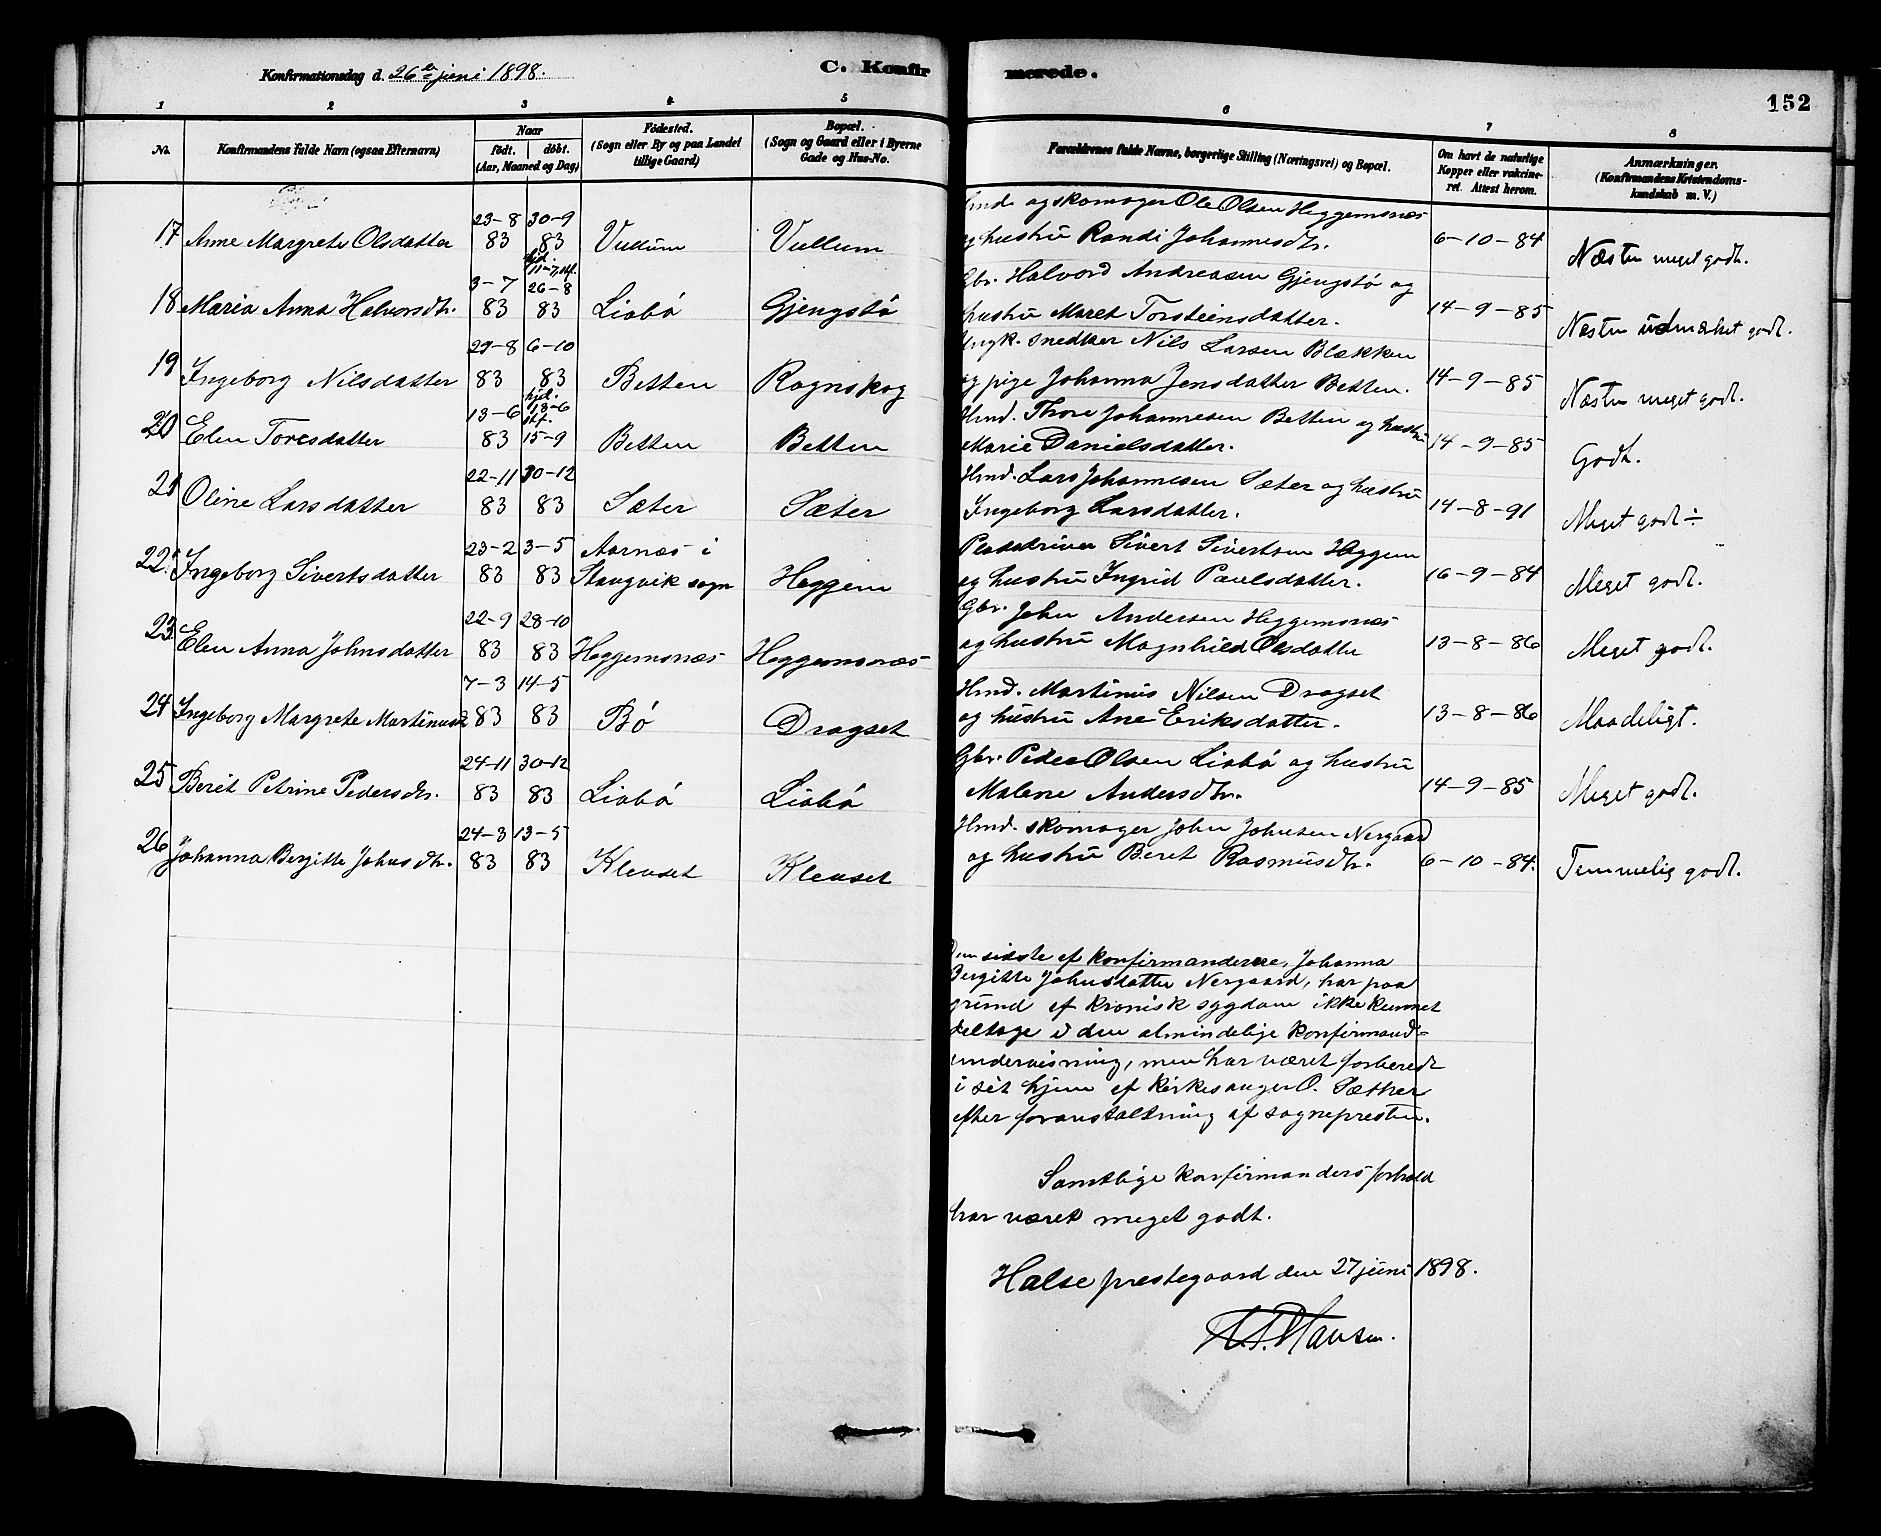 Konfirmationsdag d. 26de juni 1898.
C. Konfirmerede.
152
1 2 3 4 5 6 7 8
No.
Konfirmandens fulde Navn (ogsaa Efternavn)
Naar
født. døbt.
(Aar, Maaned og Dag)
Fødested.
(Sogn eller By og paa Landet
tillige Gaard)
Bopæl.
(Sogn og Gaard eller i Byerne
Gade og Hus-No.
Forældrenes fulde Navne, borgerlige Stilling (Næringsvei) og Bopæl.
Om havt de naturlige
Kopper eller vakcine-
ret. Attest herom.
Anmærkninger.
(Konfirmandens Kristendoms-
kundskab m. V.)
Piger
23-8 30-9 og skomager Ole Olsen Heggemsnæs
17 Anne Margrete Olsdatter 83 83 Vullum Vullum og hustru Randi Johannesdtr. 6-10-84 Næsten meget godt.
hjd.
3-7 26-8 Gbr. Halvord Andreasen Gjengstø og
18 Maria Anna Halvorsdtr. 83 83 Liabø Gjengstø hustru Maret Torsteinsdatter. 14-9-85 Næsten udmærket godt.
29-8 6-10 Ungk. snedker Nils Larsen Blækken
19 Ingeborg Nilsdatter 83 83 Betten Rognskog og pige Johanna Jensdatter Betten. 14-9-85 Næsten meget godt.
hjd.
13-6 13-6 Hmd. Thore Johannesen Betten og hustru
20 Elen Toresdatter 83 15-9 Betten Betten Marie Danielsdatter. 14-9-85 Godt.
22-11 30-12 Hmd. Lars Johannesen Sæter og hustru
21 Oline Larsdatter 83 83 Sæter Sæter Ingeborg Larsdatter. 14-8-91 Meget godt ÷
23-2 3-5 Aarnæs i Pladsdriver Sivert Sivertsen Heggem
22. Ingeborg Sivertsdatter 83 83 Stangvik sogn Heggem og hustru Ingrid Paulsdatter. 16-9-84 Meget godt.
22-9 28-10 Gbr. John Andersen Heggemsnæs
23. Elen Anna Johnsdatter 83 83 Heggemsnæs Heggemsnæs og hustru Magnhild Olsdatter 13-8-86 Meget godt.
7-3 14-5 Hmd. Martinus Nilsen Dragset
24 Ingeborg Margrete Martinusd 83 83 Bø Dragset og hustru Ane Eriksdatter. 13-8-86 Maadeligt.
24-11 30-12 Gbr. Peder Olsen Liabø og hustru
25 Berit Petrine Pedersdtr. 83 83 Liabø Liabø Malene Andersdtr. 14-9-85 Meget godt.
24-3 13-5 Hmd. skomager John Johnsen Nergaard
26 Johanna Bergitte Johnsdtr. 83 83 Klevset Klevset og hustru Beret Rasmusdtr. 6-10-84. Temmelig godt.
Den sidste af konfirmanderne, Johanna
Bergitte Johnsdatter Nergaard, har paa
grund af kronisk sygdom ikke kunnet
deltage i den almindelige konfirmand-
undervisning, men har været forberedt
i sit hjem af kirkesanger O. Sæther
efter foranstaltning af sognepresten.
Samtlige konfirmanders forhold
har været meget godt.
Halse prestegaard den 27 juni 1898.
Hansen.